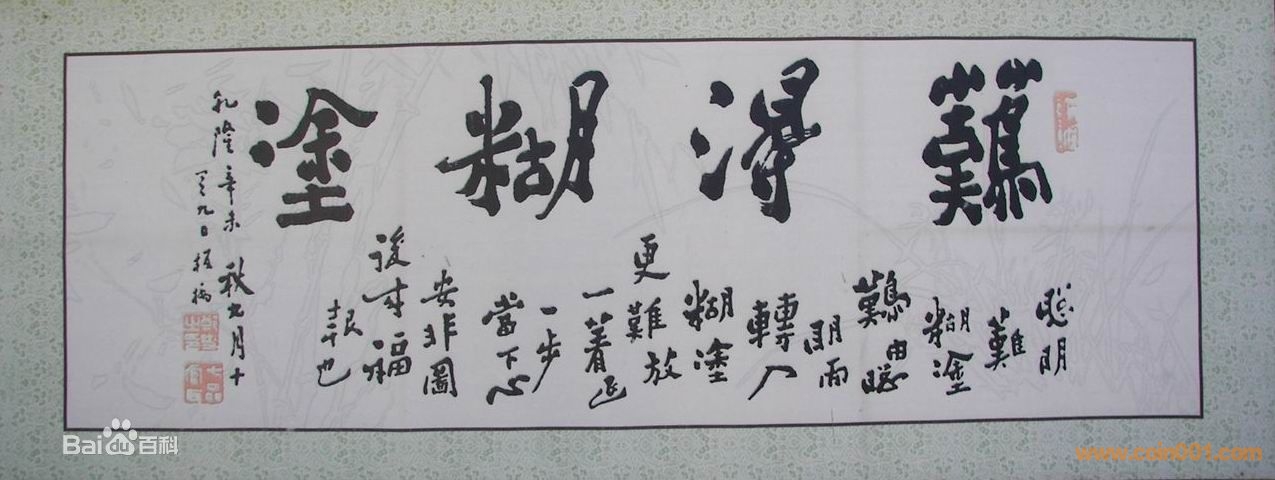 難得糊塗
聰明
難
糊塗
難由聰
明而
轉入
糊塗
更難放
一著退
一步
當下心
安非圖
後來福
報也
乾隆辛未秋九月十
有九日板橋
七品官耳
Bai百科
www.coin001.com